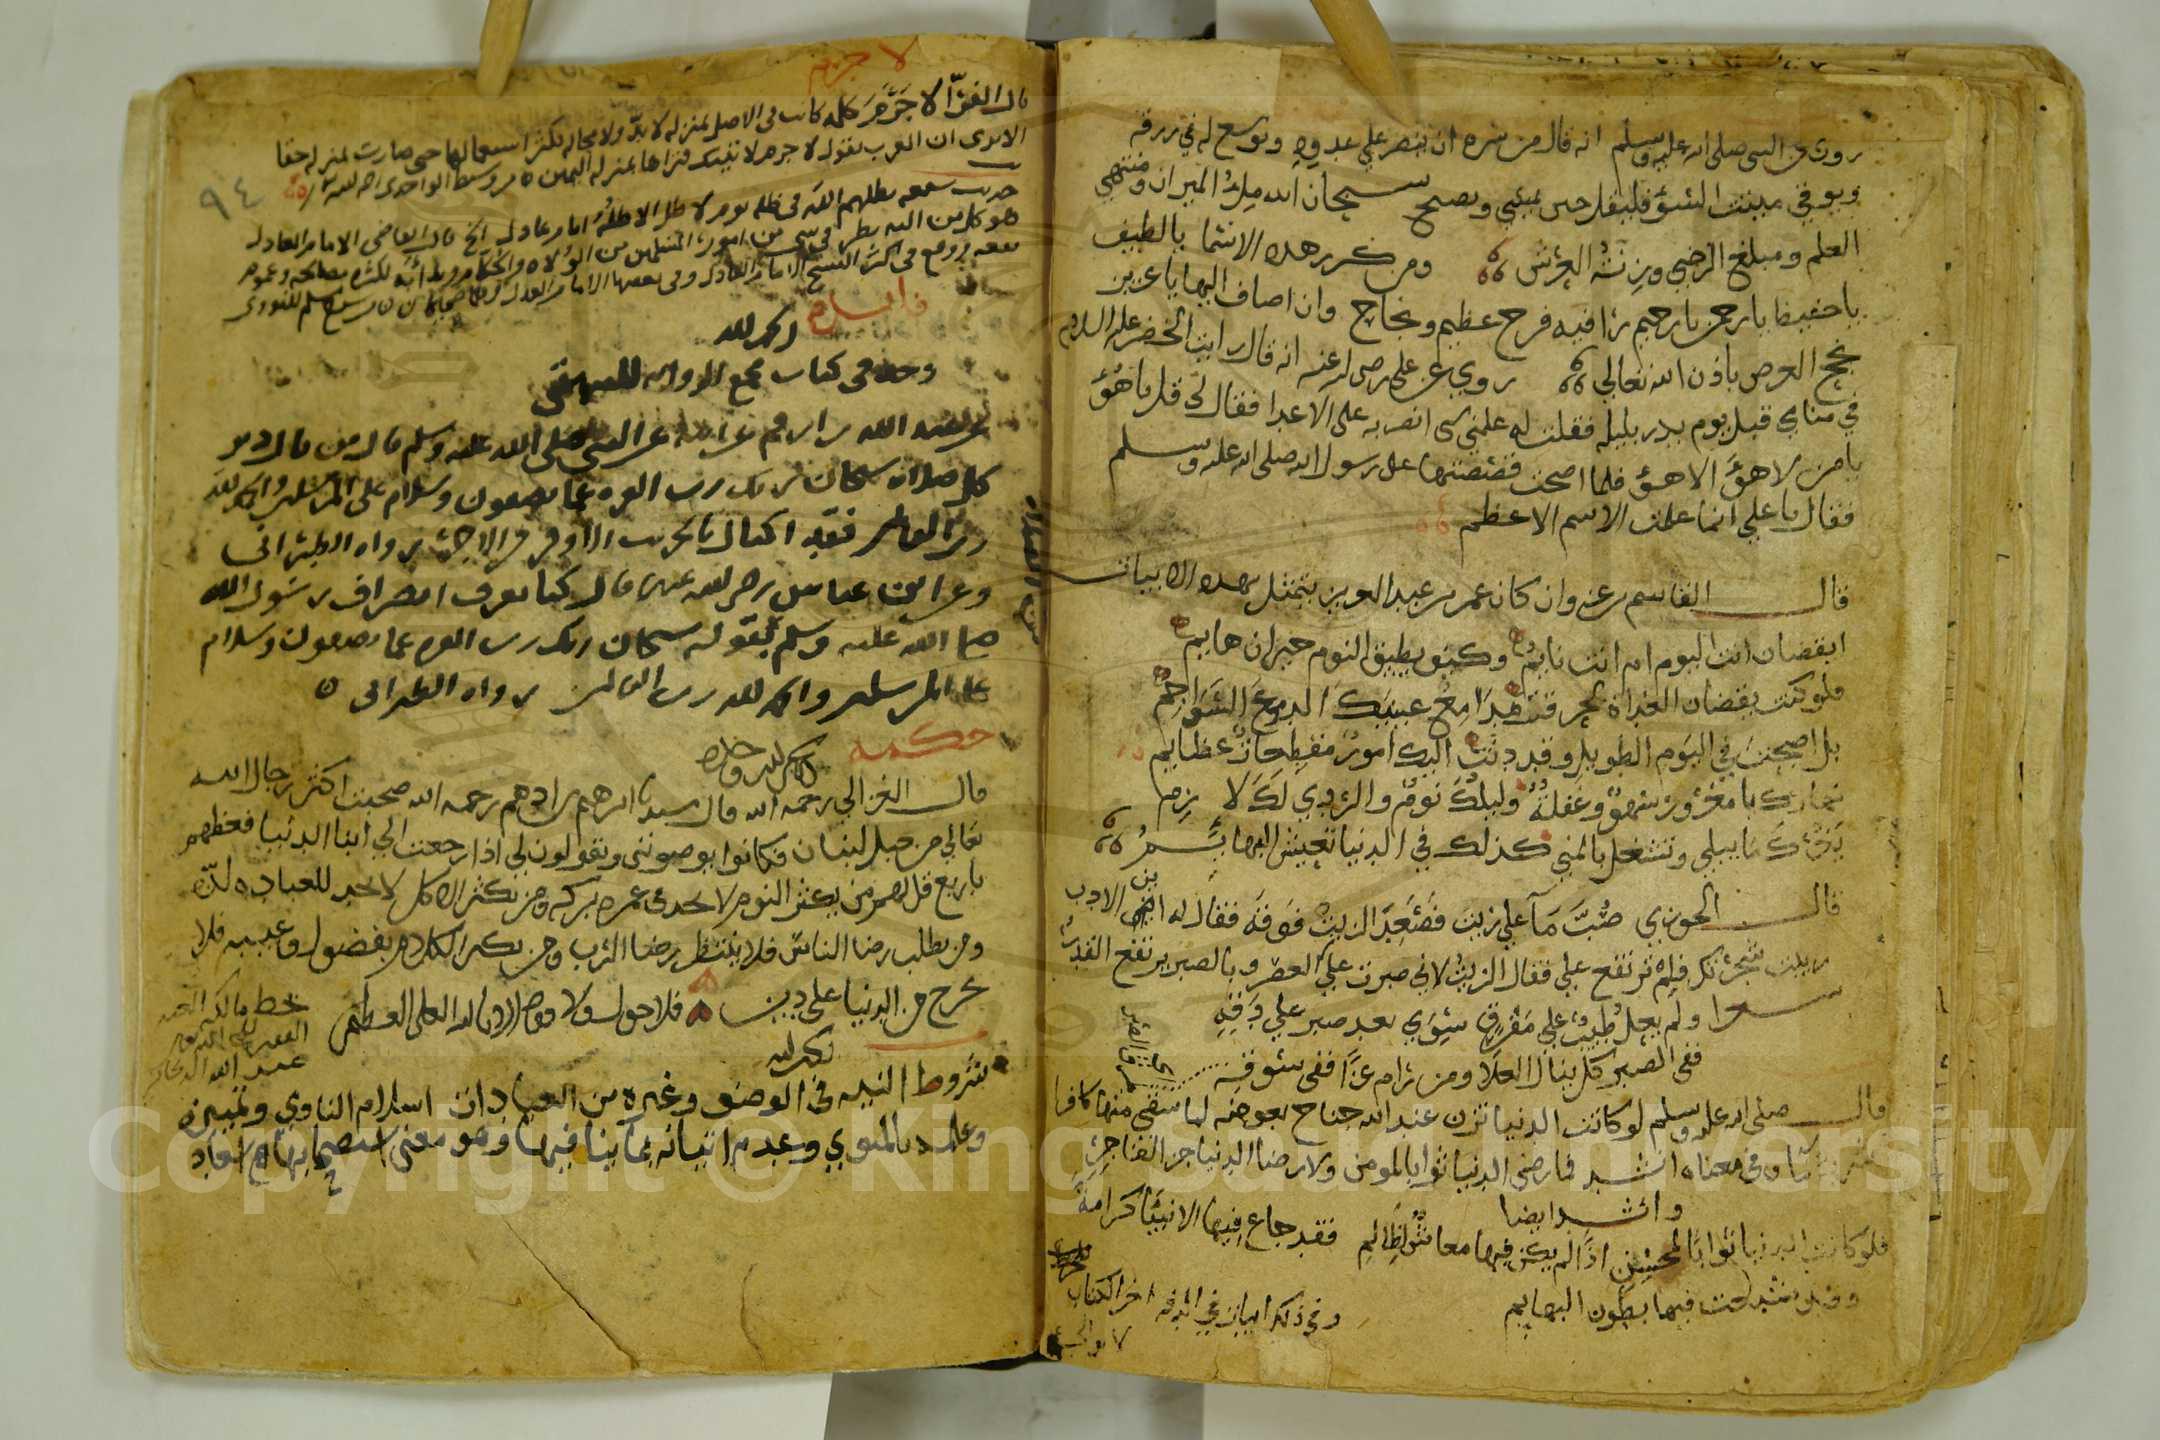 روي عن النبي صلى الله عليه وسلم انه قال من سره ان ينصر علي عدوه ويوسع له في رزقه
ويوقي ميتت السؤ فليقل حين يمسي ويصبح سبحان الله ملأ الميزان ومنتهي
العلم ومبلغ الرضي وزنة العرش ومن كرر هذه الاسما يالطيف
ياحفيظ يارحمن يارحيم رأا فيه فرج عظيم ونجاح وان اضاف اليها ياعزيز
نجح الغرض باذن الله تعالي روي عن علي رضي الله عنه انه قال رايت الخضر عليه السلام
في منامي قبل يوم بدر بليلة فقلت له علمني شي انصر به على الاعدا فقال لي قل ياهو
يا من لا هو الا هو فلما اصبحت قصصتها على رسول الله صلى الله عليه وسلم
فقال يا علي انما علمت الاسم الاعظم
قال القاسم وان كان عمر بن عبد العزيز يتمثل بهذه الابيات
ايقضان انت اليوم ام انت نايم وكيف يطيق النوم حيران هايم
فلو كنت يقضان الغداة لحرقت مدامع عينيك الدموع السواجم
بل اصبحت في النوم الطويل وقد دنت اليك امور مفظعات عظايم
نهارك يا مغرور سهو وغفلة وليلك نوم والردي لك لازم
يغرك ما يبلي وتشغل بالمني كذلك في الدنيا تعيش البهايم
قال الجوزي صب ماً علي زيت فصعد الزيت فوقه فقال له اين الادب
ربيت شجرتك فلم ترتفع علي فقال الزيت لاني صبرت علي العصر وبالصبر يرتفع القدر
ولم يعل طيب علي مفرق سوي بعد صبر علي
ففي الصبر كل ينال العلا ومن رام عزاً ففي سوقه
قال صلى الله عليه وسلم لو كانت الدنيا تزن عند الله جناح بعوضه لما سقى منها كافرا
شربة ماء وفي معناه انشد فما رضي الدنيا ثوابا لمومن ولا رضا الدنيا جزا لفاجر
وانشد ايضا
فلو كانت الدنيا ثواباً لمحسن اذاً لم يكن فيها معاش لظالم فقد جاع فيها الانبيا كرامة
وقد شبعت فيها بطون البهايم
وفي ذكر ابيات في اخر الكتاب
لا جرم
قال الفرّا لا جَرَمَ كلمة كانت في الاصل بمنزلة لا بدّ ولا محالة فكثر استعمالها حتى صارت بمنزلة حقا
الا ترى ان العرب تقول لا جرم لاتينك فتراها بمنزلة اليمين من وسيط الواحدي رحمه الله
٩٤
حديث سبعة يظلهم الله في ظله يوم لا ظل الا ظله امام عادل الخ قال القاضي الامام العادل
هو كل من اليه نظر في شي من امور المسلمين من الولاه والحكام وبدا به لكثرة مصالحه وعموم
نفعه ووقع في اكثر النسخ الامام العادل وفي بعضها الامام العدل وهما صحيحان من شرح مسلم للنووي
الحمد لله
وجد في كتاب مجمع الزوائد للهيثمي
عن عبد الله بن ارقم عن ابيه عن النبي صلى الله عليه وسلم قال من قال دبر
كل صلاة سبحان ربك رب العزة عما يصفون وسلام على المرسلين والحمد لله
رب العالمين فقد اكتال بالجريب الاوفى من الاجر رواه الطبراني
وعن ابن عباس رضي الله عنهما قال كنا نعرف انصراف رسول الله
صلى الله عليه وسلم بقوله سبحان ربك رب العزة عما يصفون وسلام
على المرسلين والحمد لله رب العالمين رواه الطبراني
حكمه
الحمد لله وحده
قال الغزالي رحمه الله قال سيدنا ابرهيم بن ادهم رحمه الله صحبت اكثر رجال الله
تعالي من جبل لبنان فكانوا يوصونني ويقولون لي اذا رجعت الي ابنا الدنيا فعظهم
باربع قل لهم من يكثر النوم لا يجد في عمره بركه ومن يكثر الاكل لا يجد للعبادة لذّه
ومن يطلب رضا الناس فلا ينتظر رضا الرب ومن يكثر الكلام بفضول وغيبه فلا
يخرج من الدنيا على دين فلا حول ولا قوة الا بالله العلي العظيم
بخط مالكه
الفقير
عبد الله
الحمد لله
شروط النيه في الوضو وغيره من العبادات اسلام الناوي وتمييزه
وعلمه بالمنوي وعدم اتيانه بما ينافيها وهو معنى استصحابها